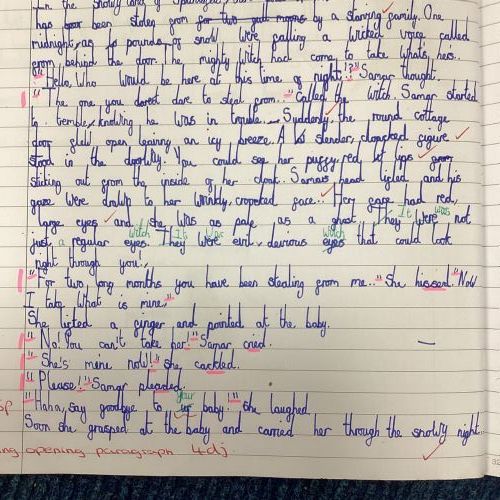 In the snowy land of
has been stolen from for two moons by a starving family. One
midnight, as pounds of snow were falling a wicked voice called
from behind the door. The mighty witch had come to take what's hers.
"Hello, Who would be here at this time of night!?" Samar thought.
"The one you dared dare to steal from.." Called the witch. Samar started
to tremble, knowing he was in trouble. Suddenly, the round cottage
door flew open leaving an icy breeze. A slender, cloacked figure
stood in the doorway. You could see her puffy red lips
sticking out from the inside of her cloak. Samar's head lifted and his
gaze were drawn to her wrinkly, crooked face.. Her face had red,
large eyes and she was as pale as a ghost. They were not It was
just a regular eyes. witch They were evil, devious eyes It was witch that could look
right through you!.
"For two long months you have been stealing from me.." She hissed. "Now
I take What is mine."
She lifted a finger and pointed at the baby.
"No! You can't take her!" Samar cried.
"She's mine now!!" she cackled.
"Please!" Samar pleaded.
"Haha, say goodbye to your baby!" She laughed.
Soon she grasped at the baby and carried her through the snowy night.
sp
opening paragraph